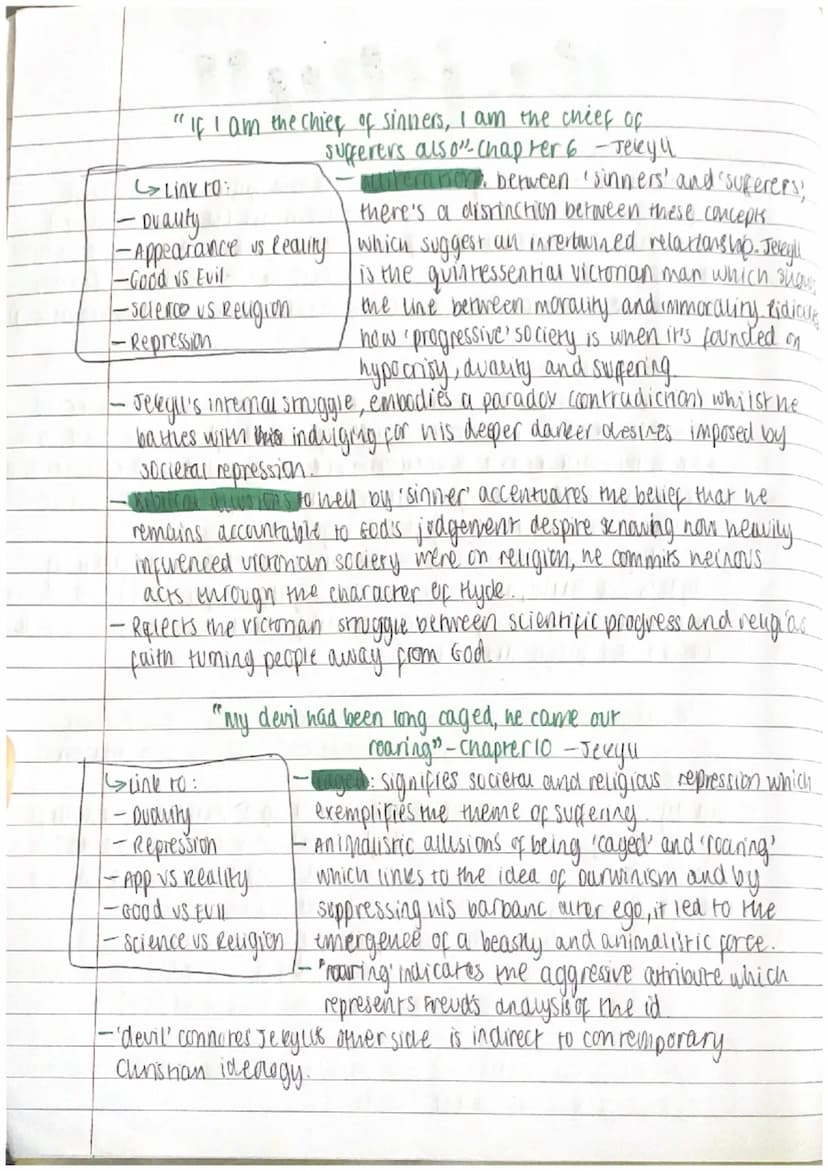 "If I am the chief of sinners, I am the chief of
sufferers also" - Chapter 6 - Jekyll
↳ Link to:
- Duality
- Appearance vs Reality
- Good vs Evil
- Science vs Religion
- Repression
- alliteration: between 'sinners' and 'suferers',
there's a distinction between these concepts
which suggest an intertwined relationship. Jekyll
is the quintessential victorian man which shows
the line between morality and immorality
how 'progressive' society is when it's founded on
hypocrisy, duality and suffering.
- Jekyll's internal struggle, embodies a paradox (contradiction) whilst he
battles with indulging for his deeper darker desires imposed by
societal repression.
- Biblical allusions to hell by 'sinner' accentuates the belief that he
remains accountable to God's judgement despite knowing how heavily
influenced victorian society were on religion, he commits heinous
acts through the character of Hyde.
- Reflects the victorian struggle between scientific progress and religious
faith turning people away from God.
"My devil had been long caged, he came out
roaring" - Chapter 10 - Jekyll
↳ Link to:
- Duality
- Repression
- App vs Reality
- Good vs Evil
- Science vs Religion
- caged: signifies societal and religious repression which
exemplifies the theme of suffering.
- Animalistic allusions of being 'caged' and 'roaring'
which links to the idea of Darwinism and by
suppressing his barbaric alter ego, it led to the
emergence of a beastly and animalistic force.
- 'roaring' indicates the aggresive attribute which
represents Freud's analysis of the id.
- 'devil' connotes Jekyll's other side is indirect to contemporary
Christian ideology.